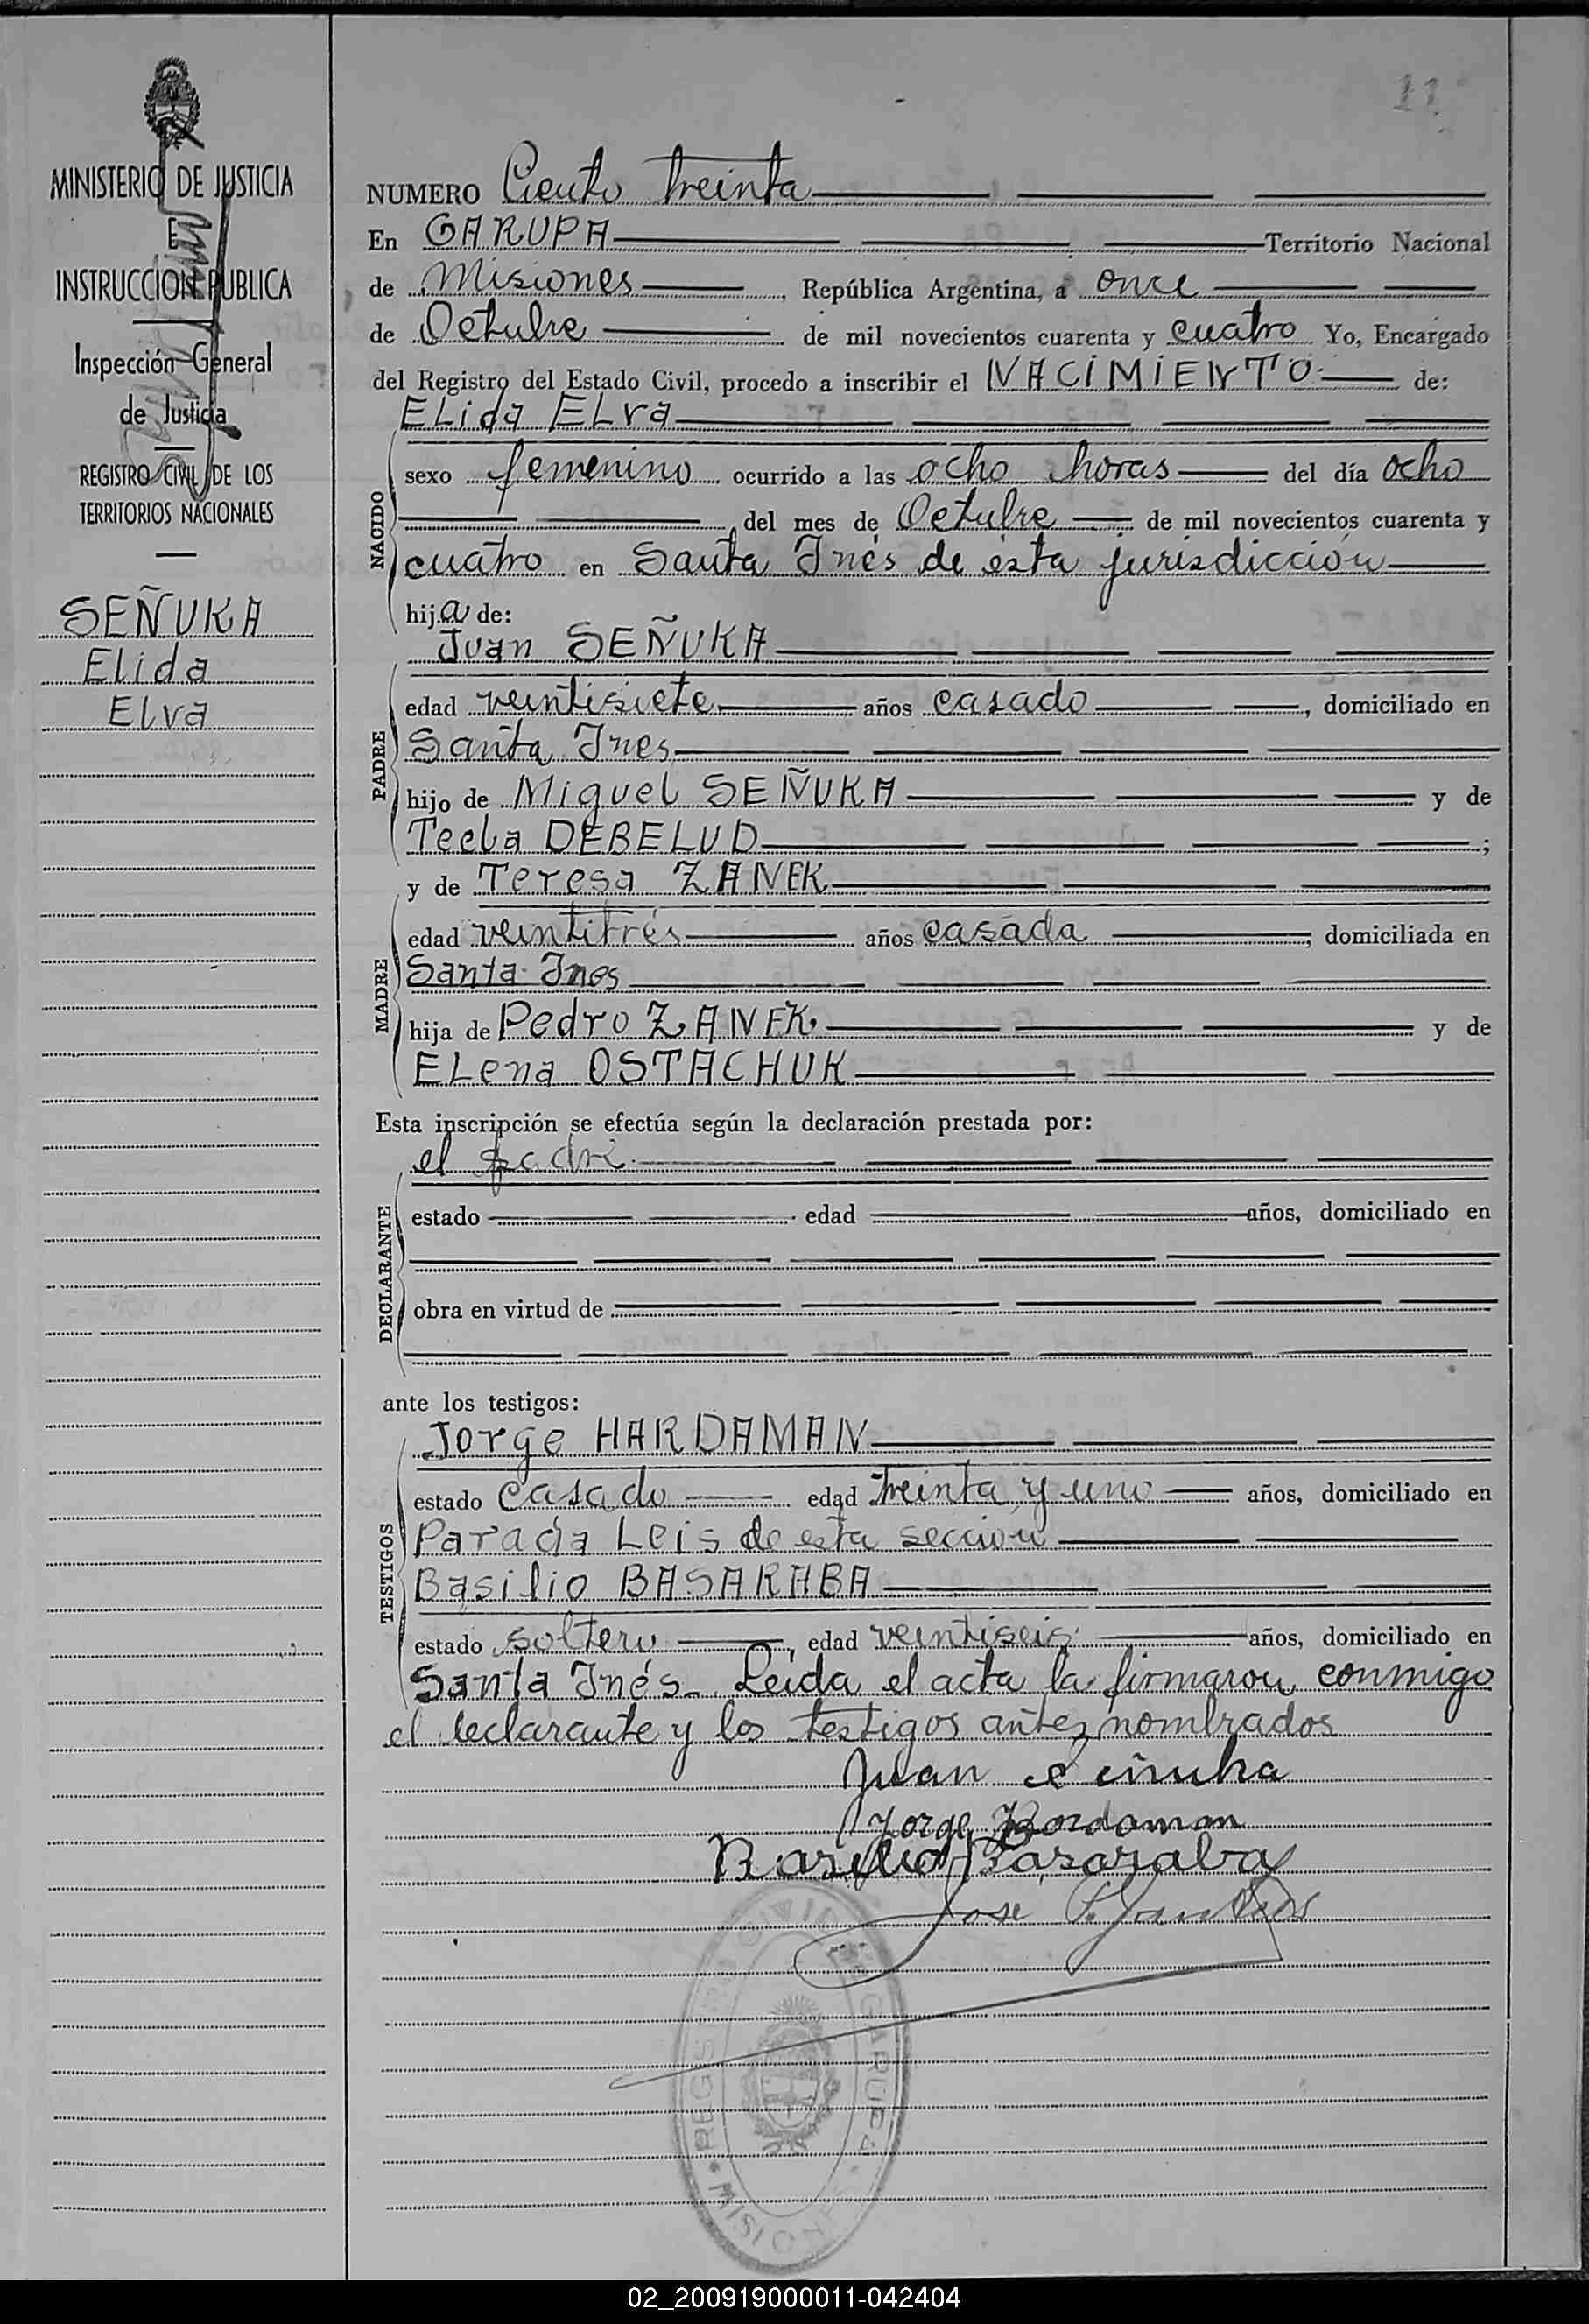 11
MINISTERIO DE JUSTICIA
E
INSTRUCCION PUBLICA
Inspección General
de Justicia
REGISTRO CIVIL DE LOS
TERRITORIOS NACIONALES
SEÑUKA
Elida
Elva
NUMERO Ciento treinta
En GARUPA Territorio Nacional
de Misiones, República Argentina, a once
de Octubre de mil novecientos cuarenta y cuatro Yo, Encargado
del Registro del Estado Civil, procedo a inscribir el NACIMIENTO de:
ELida ELva
NACIDO
sexo femenino ocurrido a las ocho horas del día ocho
del mes de Octubre de mil novecientos cuarenta y
cuatro en Santa Inés de ésta jurisdicción
hija de:
Juan SEÑUKA
PADRE
edad veintisiete años casado, domiciliado en
Santa Ines
hijo de Miguel SEÑUKA y de
Tecla DEBELUD;
y de Teresa ZANEK
MADRE
edad veintitrés años casada, domiciliada en
Santa Ines
hija de Pedro ZANEK y de
ELena OSTACHUK
Esta inscripción se efectúa según la declaración prestada por:
el padre
DECLARANTE
estado edad años, domiciliado en
obra en virtud de
ante los testigos:
Jorge HARDAMAN
TESTIGOS
estado casado edad treinta y uno años, domiciliado en
Parada Leis de esta sección
Basilio BASARABA
estado soltero, edad veintiseis años, domiciliado en
Santa Inés. Leida el acta la firmaron conmigo
el declarante y los testigos antes nombrados
Juan Señuka
Jorge Hardaman
Basilio Basaraba
Jose
REGISTRO CIVIL GARUPA
MISIONES
02_200919000011-042404